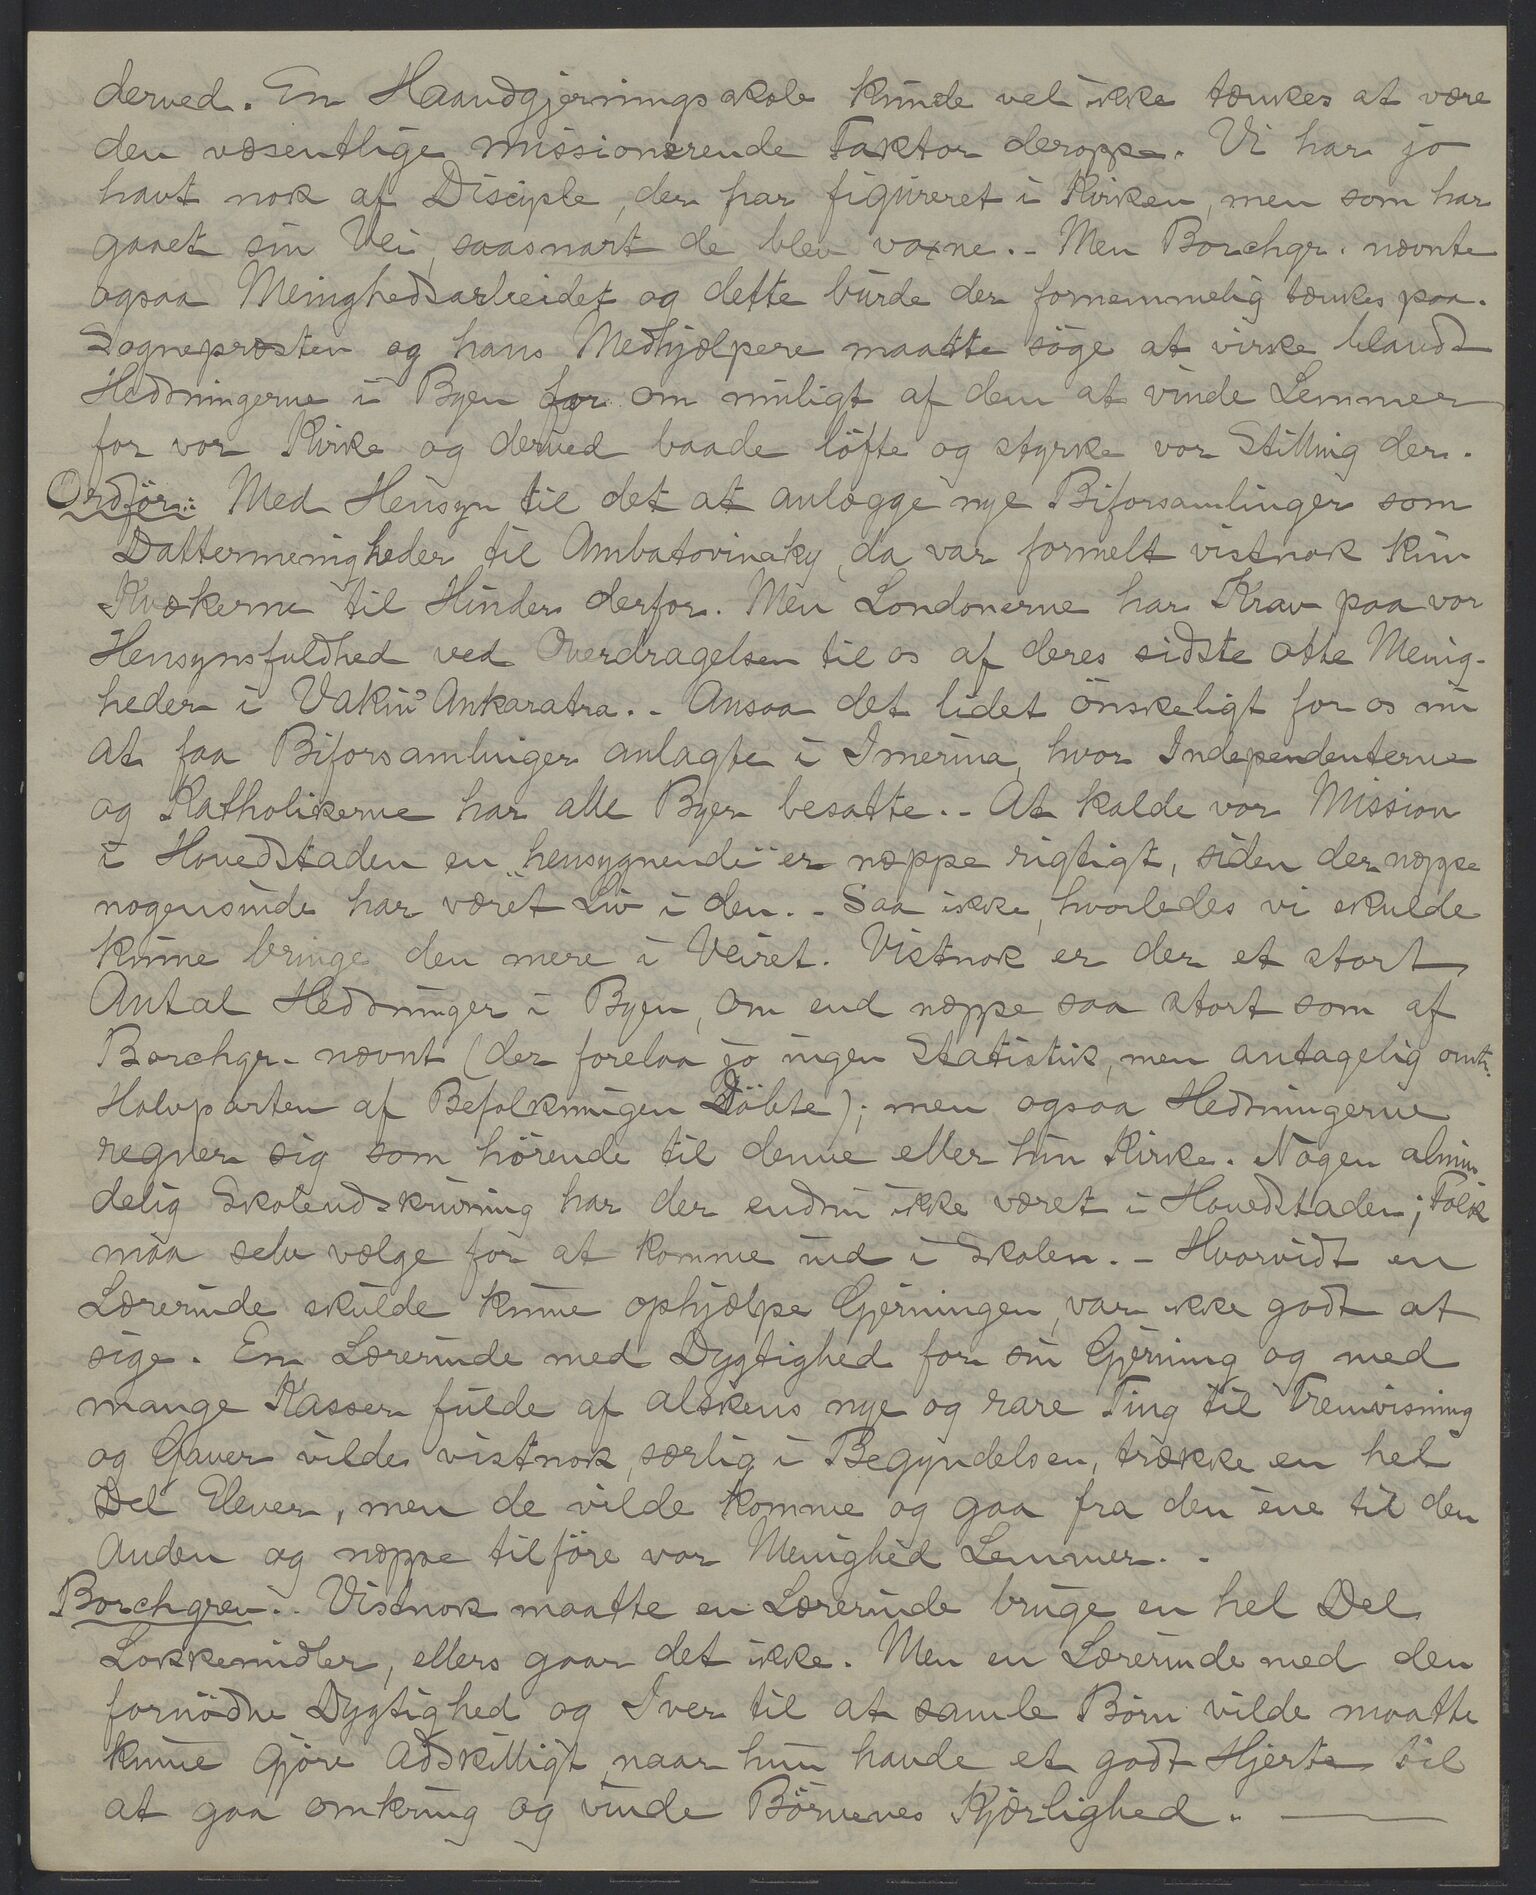 derved. En Haandgjerningsskole kunde vel ikke tænkes at være
den væsentlige missionerende Faktor deroppe. Vi har jo
havt nok af Disciple, der har figureret i Kirken, men som har
gaaet sin Vei, saasnart de blev voxne. - Men Borchgr. nævnte
ogsaa Menighedsarbeidet og dette burde der fornemmelig tænkes paa.
Sognepræsten og hans Medhjælpere maatte söge at virke blandt
Hedningerne i Byen for om muligt af dem at vinde Lemmer
for vor Kirke og derved baade löfte og styrke vor Stilling der.
Ordför.: Med Hensyn til det at anlægge nye Biforsamlinger som
Dattermenigheder til Ambatovinaky, da var formelt vistnok kun
Kvækerne til Hinder derfor. Men Londonerne har Krav paa vor
Hensynsfuldhed ved Overdragelsen til os af deres sidste otte Menig-
heder i Vakin' Ankaratra. - Ansaa det lidet önskeligt for os nu
at faa Biforsamlinger anlagte i Imerina, hvor Independenterne
og Katholikerne har alle Byer besatte. - At kalde vor Mission
i Hovedstaden en "hensygnende" er næppe rigtigt, siden der næppe
nogensinde har været Liv i den. - Saa ikke, hvorledes vi skulde
kunne bringe den mere i Veiret. Vistnok er der et stort
Antal Hedninger i Byen, om end næppe saa stort som af
Borchgr. nævnt (der forelaa jo ingen Statistik, men antagelig omtr.
Halvparten af Befolkningen Döbte); men ogsaa Hedningerne
regner sig som hörende til denne eller hin Kirke. Nogen almin
delig Skoleudskrivning har der endnu ikke været i Hovedstaden; Folk
maa selv vælge for at komme ind i Skolen. - Hvorvidt en
Lærerinde skulde kunne ophjælpe Gjerningen, var ikke godt at
sige. En Lærerinde med Dygtighed for sin Gjerning og med
mange Kasser fulde af alskens nye og rare Ting til Fremvisning
og Gaver vilde vistnok, særlig i Begyndelsen, trække en hel
Del Elever, men de vilde komme og gaa fra den ene til den
Anden og næppe tilföre vor Menighed Lemmer. -
Borchgrev.. Vistnok maatte en Lærerinde bruge en hel Del
Lokkemidler, ellers gaar det ikke. Men en Lærerinde med den
fornödne Dygtighed og Iver til at samle Börn vilde maatte
kunne gjöre adskilligt, naar hun havde et godt Hjerte til
at gaa omkring og vinde Börnenes Kjærlighed. -